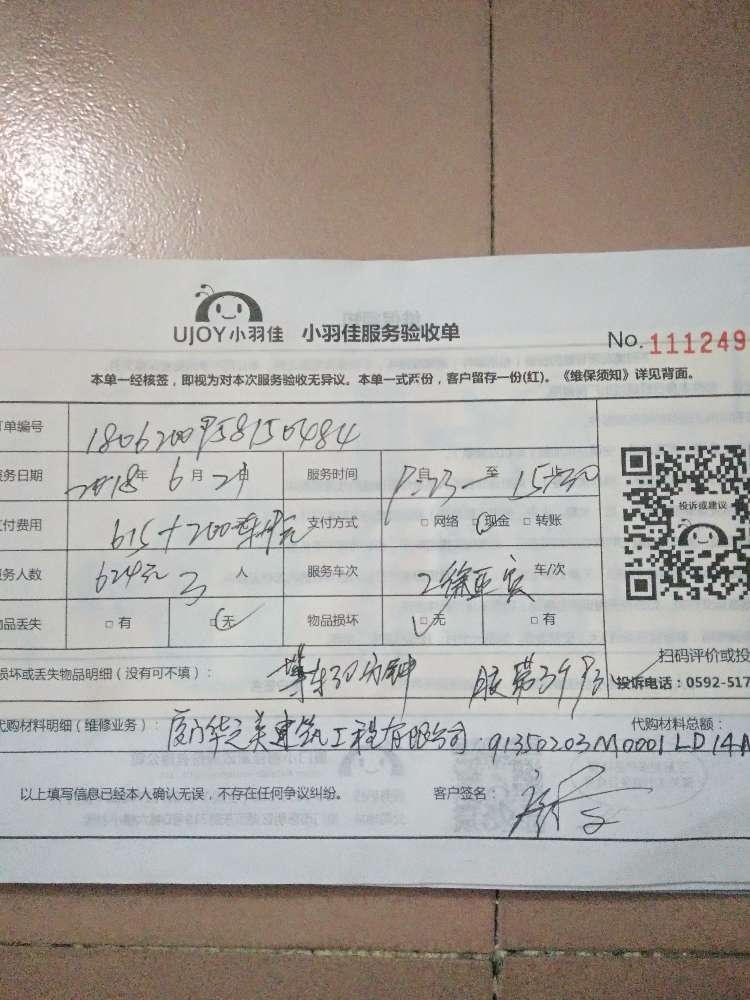 UJOY小羽佳 小羽佳服务验收单
No. 111249
本单一经核签，即视为对本次服务验收无异议。本单一式两份，客户留存一份(红)。《维保须知》详见背面。
单编号
务日期 2018年 6月 2 日 服务时间 自 至 15
付费用 615+200 元 支付方式 □ 网络 □ 现金 □ 转账
投诉或建议
务人数 624元 3 人 服务车次 2 车/次
品丢失 □ 有 □ 无 物品损坏 □ 无 □ 有
扫码评价或投
损坏或丢失物品明细（没有可不填）： 等车30分钟 胶带3个
投诉电话：0592-517
代购材料明细（维修业务）： 厦门华之美建筑工程有限公司 代购材料总额：
91350203M0001LD14A
以上填写信息已经本人确认无误，不存在任何争议纠纷。 客户签名：